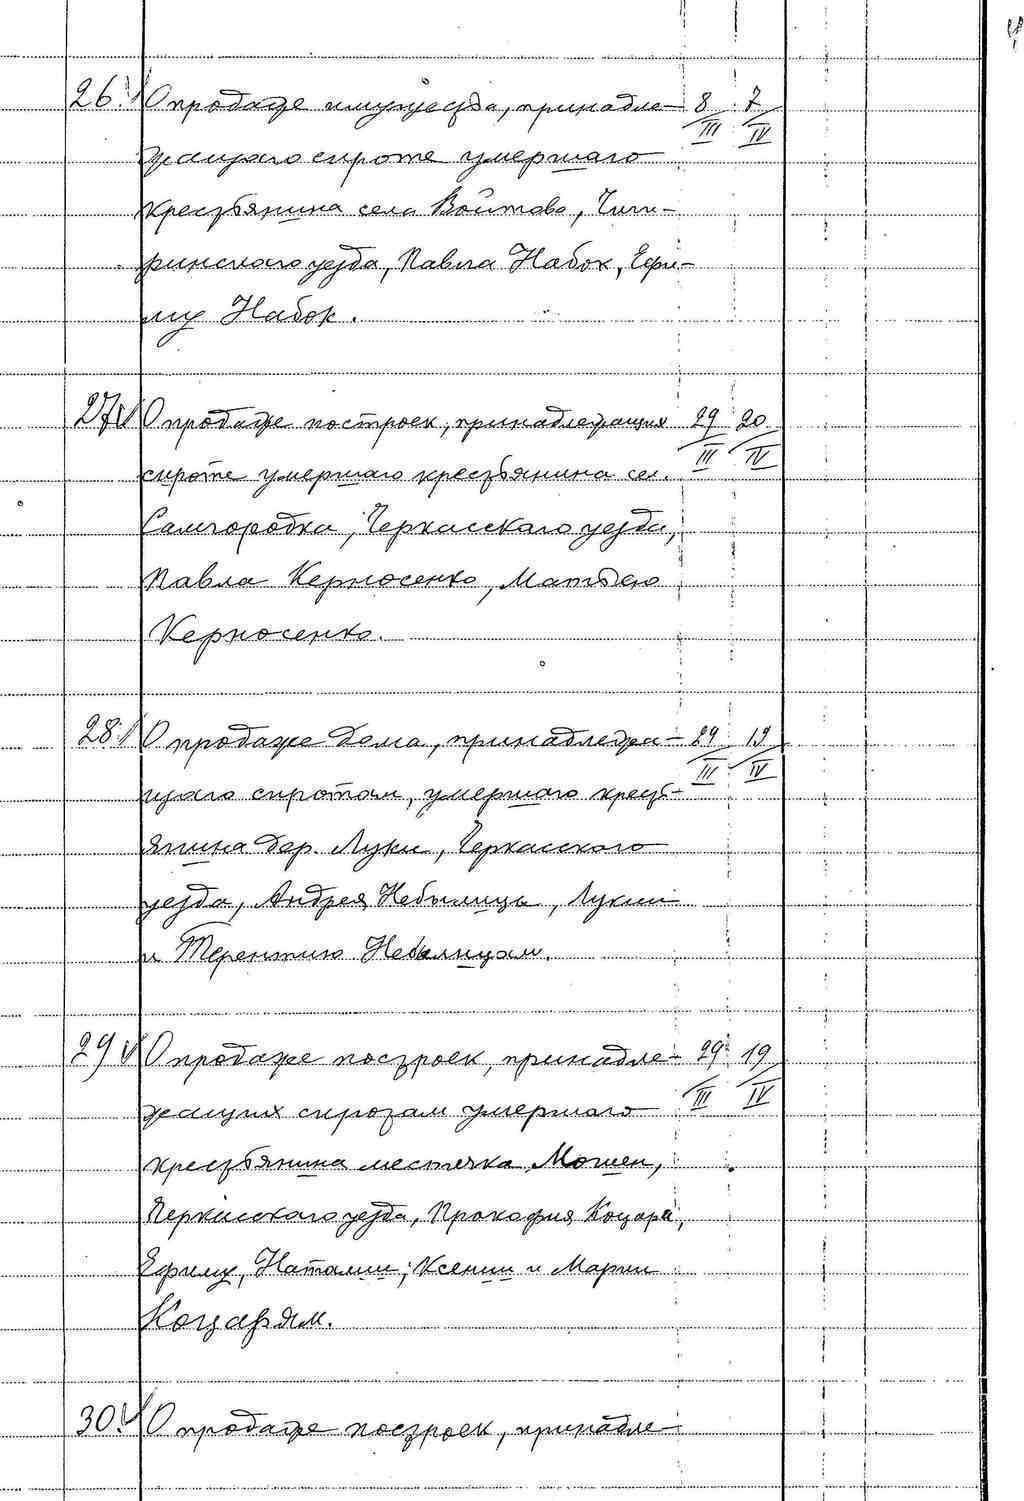 26. О продаже имущества, принадле- 8/III 7/IV
жащаго сироте умершаго
крестьянина села Войтово, Чиги-
ринскаго уезда, Павла Набок, Ефи-
му Набок.
27 О продаже построек, принадлежащих 29/III 20/IV
сироте умершаго крестьянина сел.
Самгородка, Черкасскаго уезда,
Павла Керносенко, Матвею
Керносенко.
28. О продаже дома, принадлежа- 29/III 19/IV
щаго сиротам, умершаго кресть-
янина дер. Луки, Черкасского
уезда, Андрея Небылицы, Лукии
и Терентию Небылицам.
29 О продаже построек, принадле- 29/III 19/IV
жащих сиротам умершаго
крестьянина местечка Мошен,
Черкасскаго уезда, Прокофия Коцаря,
Ефиму, Наталии, Ксении и Марии
Коцарям.
30. О продаже построек, принадле-